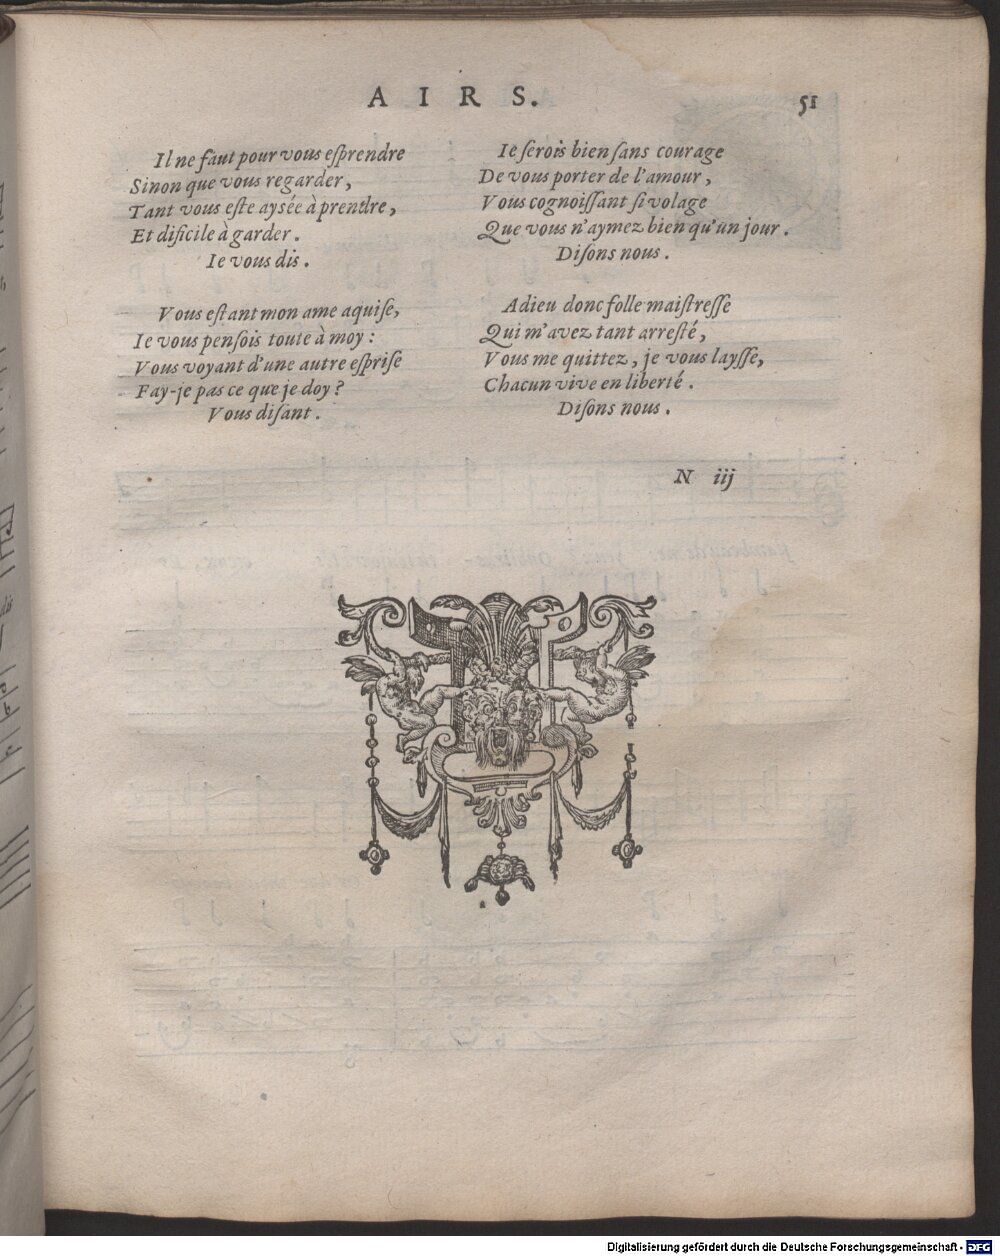 AIRS.
51
Il ne faut pour vous eſprendre
Sinon que vous regarder,
Tant vous eſte aysée à prendre,
Et dificile à garder.
Ie vous dis.
Vous eſtant mon ame aquiſe,
Ie vous penſois toute à moy :
Vous voyant d'une autre eſpriſe
Fay-je pas ce que je doy ?
Vous diſant.
Ie ſerois bien ſans courage
De vous porter de l'amour,
Vous cognoiſſant ſi volage
Que vous n'aymez bien qu'un jour.
Diſons nous.
Adieu donc folle maiſtreſſe
Qui m'avez tant arreſté,
Vous me quittez, je vous layſſe,
Chacun vive en liberté.
Diſons nous.
N iij
Digitalisierung gefördert durch die Deutsche Forschungsgemeinschaft - DFG